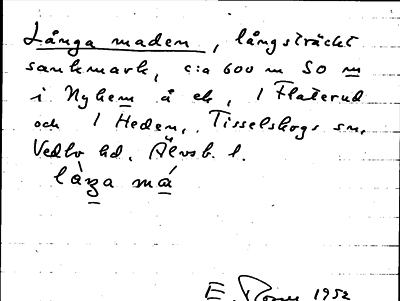 Långa maden, långsträckt
sankmark, c:a 600 m SO m
i Nyhem å ek, 1 Flaterud
och 1 Heden, Tisselskogs sn,
Vedbo hd. Älvsb. l.
långa má
E. 1952